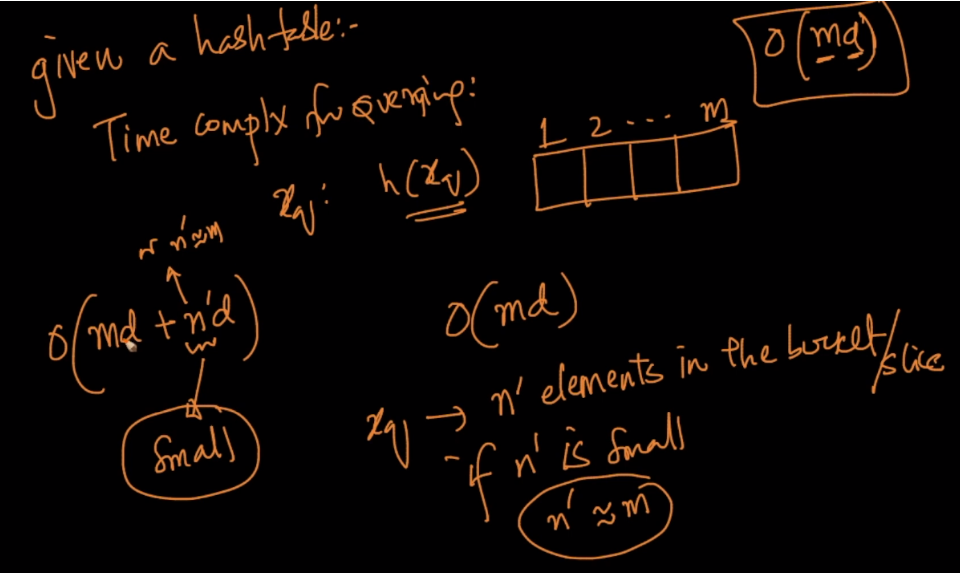 given a hashtable:-
O(md)
Time complx for querying:
1 2 ... m
xq: h(xq)
n'≈m
O(md + n'd)
O(md)
small
xq → n' elements in the bucket/slice
- if n' is small
n' ≈ m